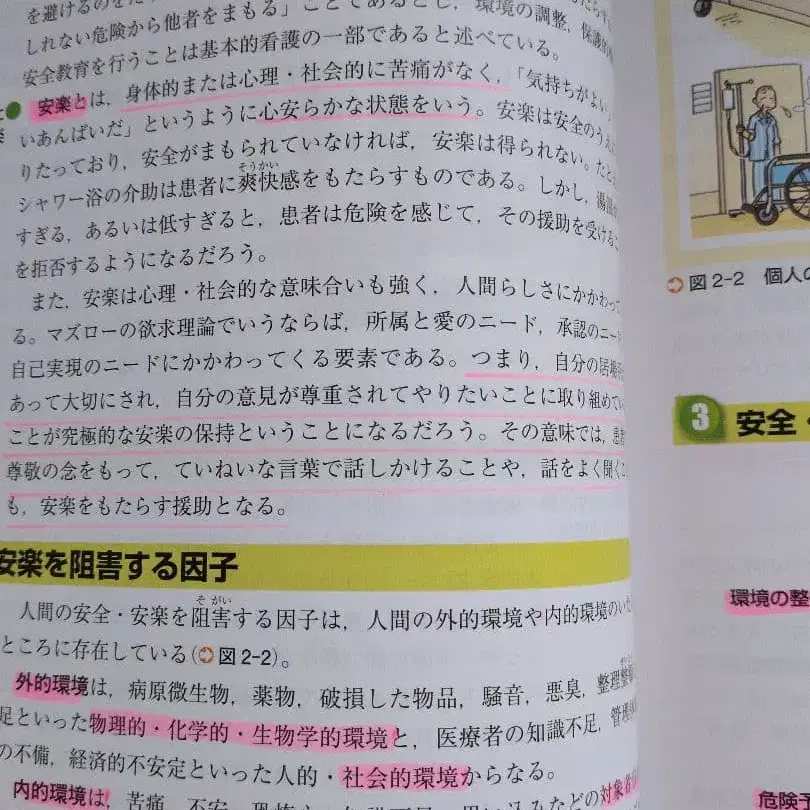 を避けるの
しれない危険から他者をまもる」ことであるとし，環境の調整，保護的
安全教育を行うことは基本的看護の一部であると述べている。
楽
安楽とは，身体的または心理・社会的に苦痛がなく，「気持ちがよい」
いあんばいだ」というように心安らかな状態をいう。安楽は安全のうえに
りたっており，安全がまもられていなければ，安楽は得られない。たと
そうかい
シャワー浴の介助は患者に爽快感をもたらすものである。しかし，湯温が
すぎる，あるいは低すぎると，患者は危険を感じて，その援助を受けるこ
を拒否するようになるだろう。
また，安楽は心理・社会的な意味合いも強く，人間らしさにかかわって
る。マズローの欲求理論でいうならば，所属と愛のニード，承認のニー
自己実現のニードにかかわってくる要素である。つまり，自分の居場所
あって大切にされ，自分の意見が尊重されてやりたいことに取り組めてい
ことが究極的な安楽の保持ということになるだろう。その意味では，患者
尊敬の念をもって，ていねいな言葉で話しかけることや，話をよく聞くこ
も，安楽をもたらす援助となる。
安楽を阻害する因子
そがい
人間の安全・安楽を阻害する因子は，人間の外的環境や内的環境のいた
ところに存在している(➲図2-2)。
外的環境は，病原微生物，薬物，破損した物品，騒音，悪臭，整理整
足といった物理的・化学的・生物学的環境と，医療者の知識不足，管理
の不備，経済的不安定といった人的・社会的環境からなる。
内的環境は，苦痛，不安，恐怖，
などの対象者
➲図2-2 個人の
3 安全・
環境の整
危険